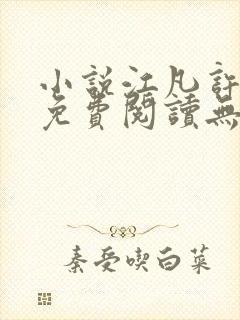 小說江凡許
免費閱讀無
秦受喫白菜